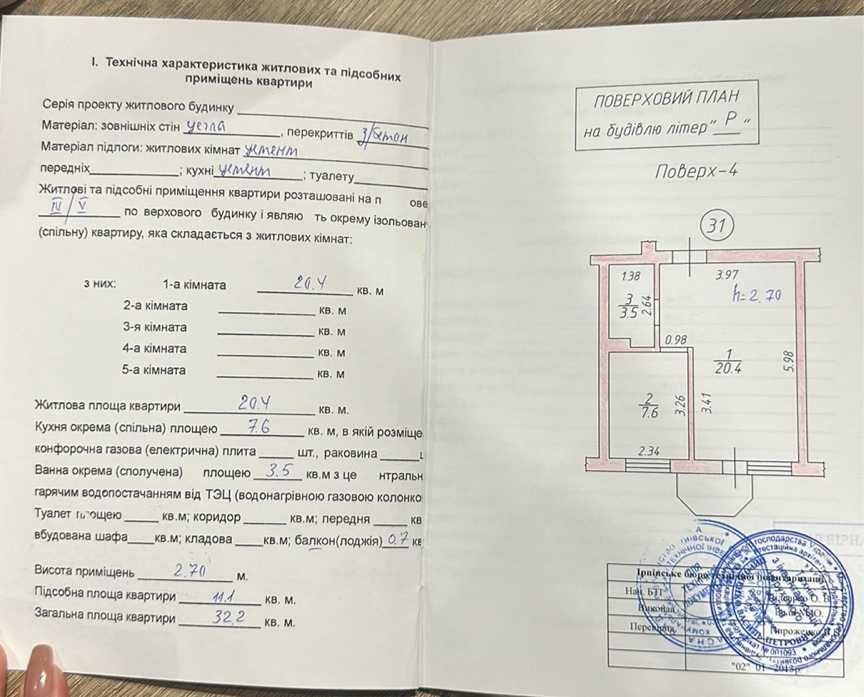 I. Технічна характеристика житлових та підсобних
приміщень квартири
Серія проекту житлового будинку
Матеріал: зовнішніх стін цегла, перекриттів з/бетон
Матеріал підлоги: житлових кімнат цемент
передніх ; кухні цемент ; туалету
Житлові та підсобні приміщення квартири розташовані на п ове
IV / V по верхового будинку і являю ть окрему ізольован
(спільну) квартиру, яка складається з житлових кімнат:
з них: 1-а кімната 20.4 кв. м
2-а кімната кв. м
3-я кімната кв. м
4-а кімната кв. м
5-а кімната кв. м
Житлова площа квартири 20.4 кв. м.
Кухня окрема (спільна) площею 7.6 кв. м, в якій розміще
конфорочна газова (електрична) плита шт., раковина
Ванна окрема (сполучена) площею 3.5 кв.м з це нтральн
гарячим водопостачанням від ТЭЦ (водонагрівною газовою колонко
Туалет площею кв.м; коридор кв.м; передня кв
вбудована шафа кв.м; кладова кв.м; балкон(лоджія) 0.7 кв
Висота приміщень 2.70 м.
Підсобна площа квартири 11.1 кв. м.
Загальна площа квартири 32.2 кв. м.
ПОВЕРХОВИЙ ПЛАН
на будівлю літер " Р "
Поверх-4
31
1.38
3.97
3
3.5
2.64
h=2.70
0.98
1
20.4
5.98
2
7.6
3.26
3.41
2.34
Ірпінське бюро технічної інвентаризації
Нач. БТІ
Виконав
Перевірив
"02" 01 2013р.